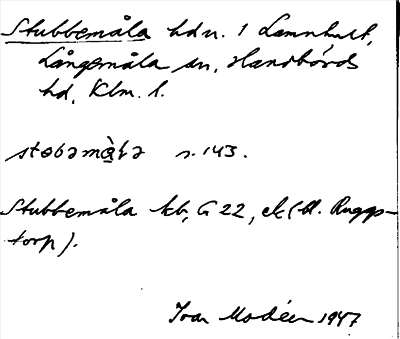 Stubbemåla hdn. 1 Lemnhult,
Långemåla sn, Handbörds
hd, Klm. l.
stɵbəmà̱ɫa s. 143.
Stubbemåla kb, G 22, ek (bl. Ruggs-
torp).
Ivar Modéer 1947